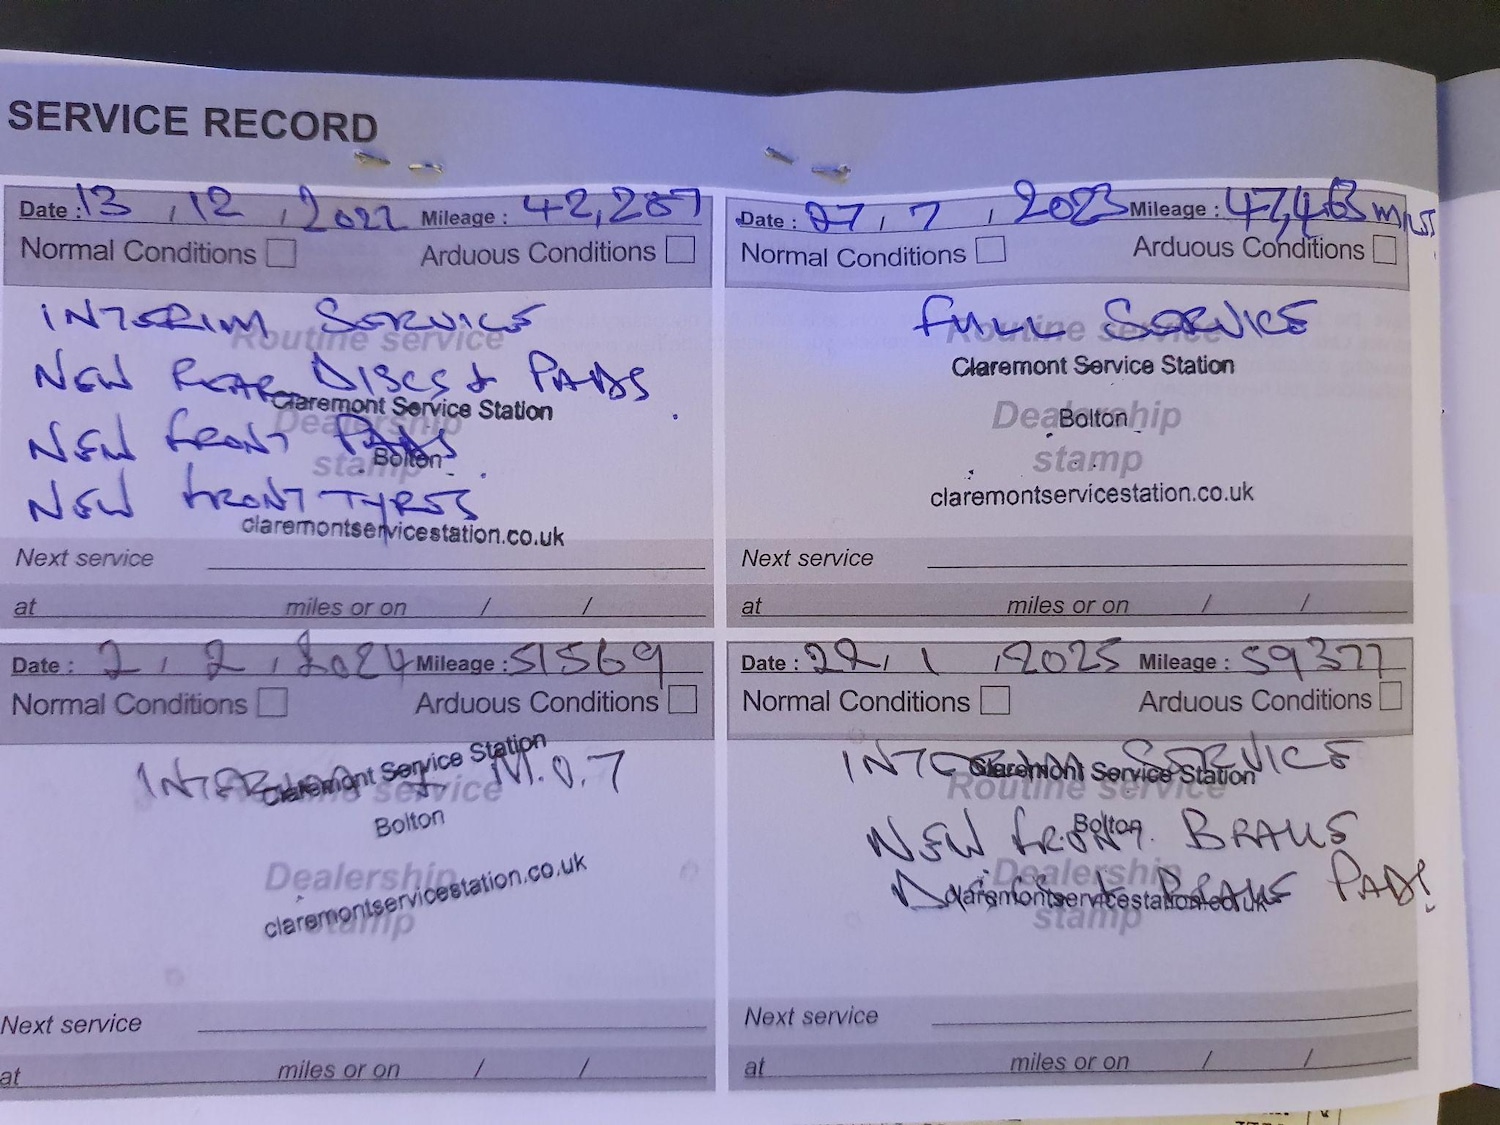 SERVICE RECORD
Date : 13 / 12 / 2022 Mileage : 42,287
Normal Conditions Arduous Conditions
INTERIM SERVICE
Routine service
NEW REAR DISCS + PADS
Claremont Service Station
Dealership
NEW FRONT PADS
stamp
Bolton
NEW FRONT TYRES
claremontservicestation.co.uk
Next service
at miles or on / /
Date : 27 / 7 / 2023 Mileage : 47,463 miles
Normal Conditions Arduous Conditions
FULL SERVICE
Routine service
Claremont Service Station
Dealership
Bolton
stamp
claremontservicestation.co.uk
Next service
at miles or on / /
Date : 2 / 2 / 2024 Mileage : 51569
Normal Conditions Arduous Conditions
Claremont Service Station
INTERIM + M.O.T
service
Bolton
Dealership
claremontservicestation.co.uk
stamp
Next service
at miles or on / /
Date : 22 / 1 / 2025 Mileage : 59377
Normal Conditions Arduous Conditions
INTERIM SERVICE
Claremont Service Station
Routine service
NEW FRONT BRAKE
Bolton
Dealership
DISCS + BRAKE PADS
claremontservicestation.co.uk
stamp
Next service
at miles or on / /